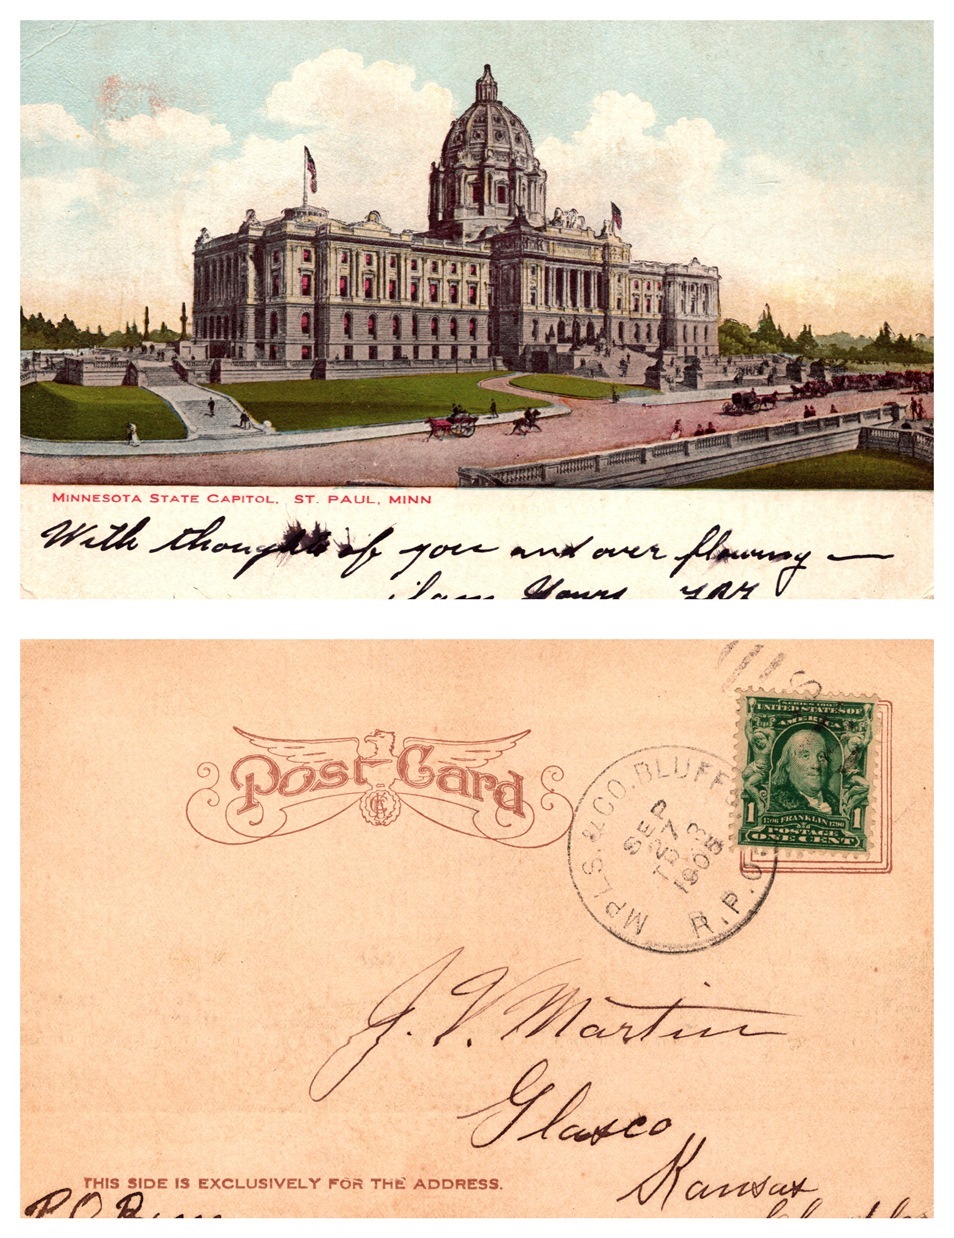 MINNESOTA STATE CAPITOL. ST. PAUL, MINN
With thoughts of you and over flowing —
Yours
Post Card
SERIES 1902
UNITED STATES OF
AMERICA
1 1
1706 FRANKLIN 1790
POSTAGE
ONE CENT
MPLS. & CO. BLUFFS
SEP
27
1905
R.P.O.
J. V. Martin
Glasco
Kansas
THIS SIDE IS EXCLUSIVELY FOR THE ADDRESS.
P.O.